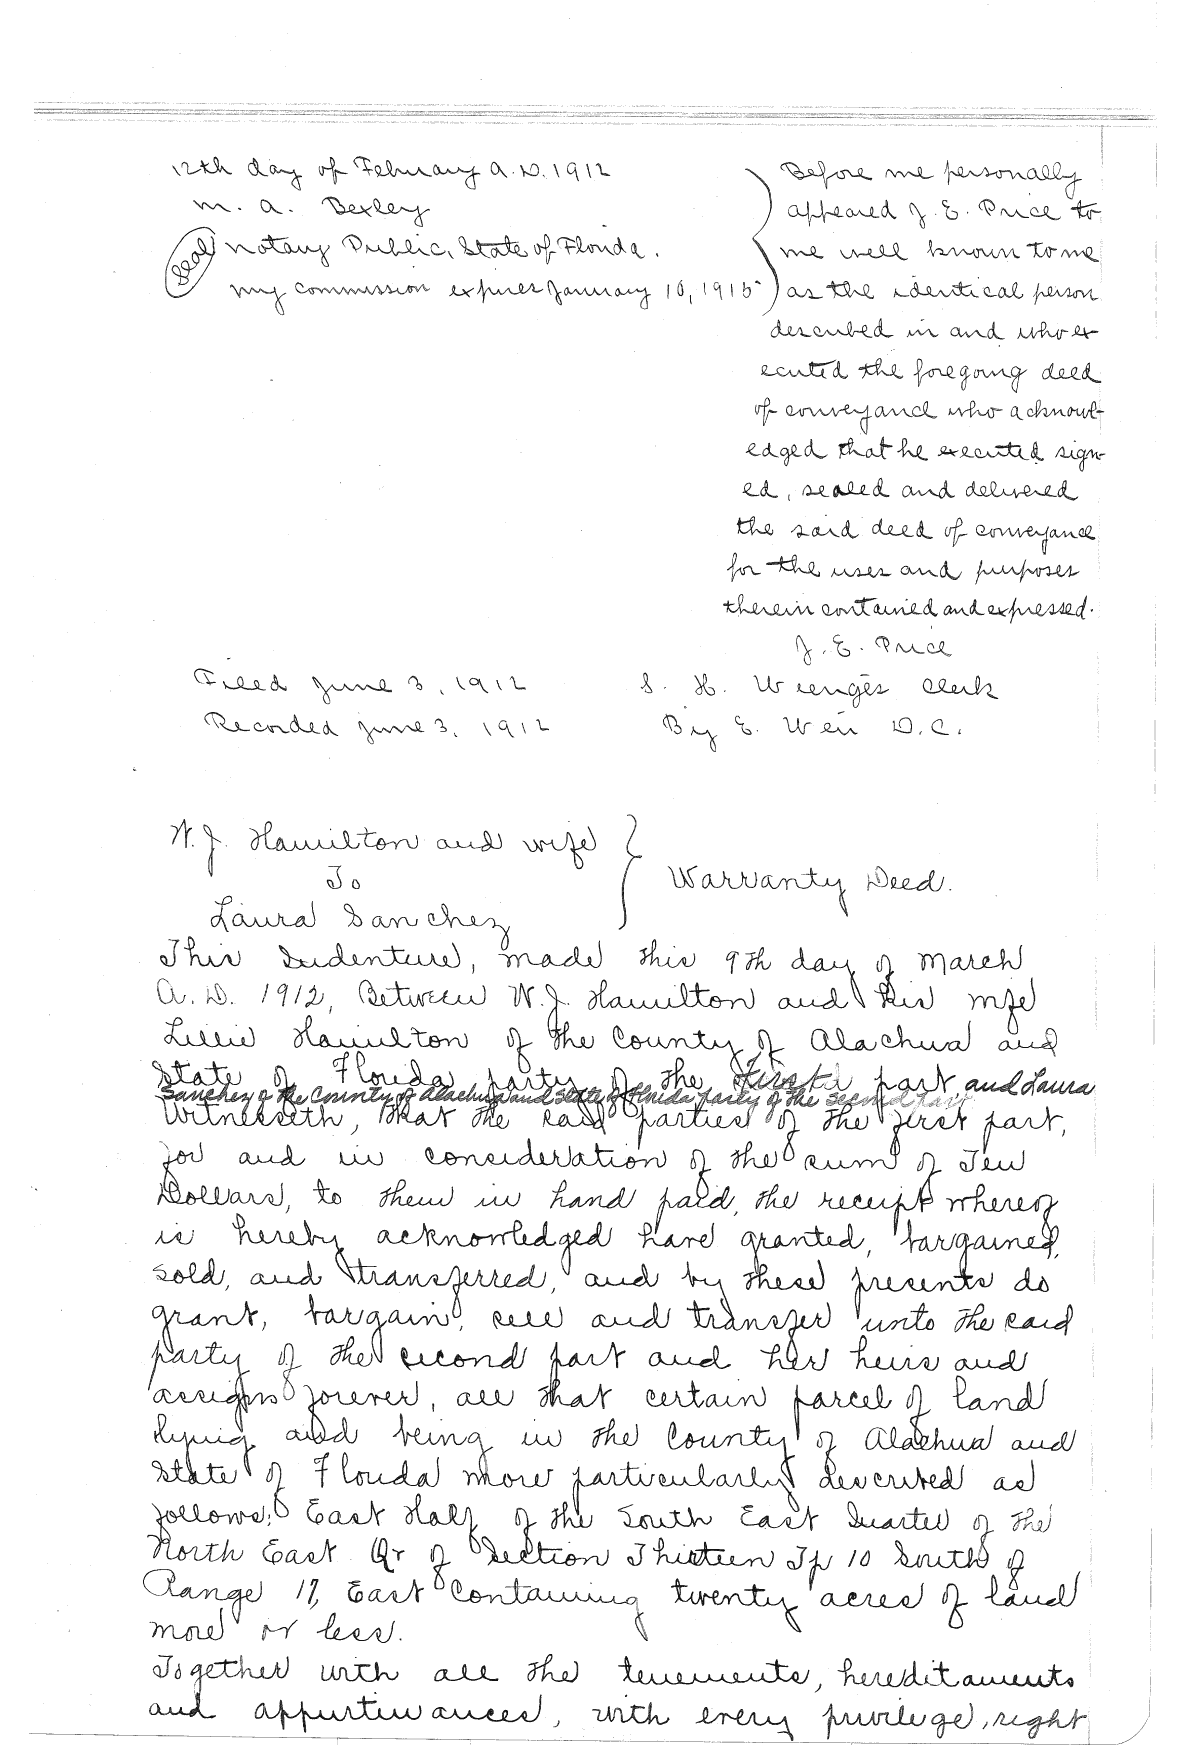 12th day of February A.D. 1912
M. A. Bexley
Seal Notary Public, State of Florida.
My commission expires January 10, 1915
Before me personally
appeared J. E. Price to
me well known to me
as the identical person
described in and who ex
ecuted the foregoing deed
of conveyance who acknowl-
edged that he executed sign-
ed, sealed and delivered
the said deed of conveyance
for the uses and purposes
therein contained and expressed.
J. E. Price
Filed June 3, 1912 S. H. Wienges Clerk
Recorded June 3, 1912 By E. Wei D.C.
W. J. Hamilton and wife
To
Laura Sanchez
Warranty Deed.
This Indenture, made this 9th day of March
A. D. 1912, Between W. J. Hamilton and his wife
Lillie Hamilton of the County of Alachua and
State of Florida party of the first part and Laura
Sanchez of the County of Alachua and State of Florida party of the second part
Witnesseth, that the said parties of the first part,
for and in consideration of the sum of Ten
Dollars, to them in hand paid, the receipt whereof
is hereby acknowledged have granted, bargained,
sold, and transferred, and by these presents do
grant, bargain, sell and transfer unto the said
party of the second part and her heirs and
assigns forever, all that certain parcel of land
lying and being in the County of Alachua and
State of Florida more particularly described as
follows: East Half of the South East Quarter of the
North East Qr of Section Thirteen Tp 10 South of
Range 17, East Containing twenty acres of land
more or less.
Together with all the tenements, hereditaments
and appurtenances, with every privilege, right